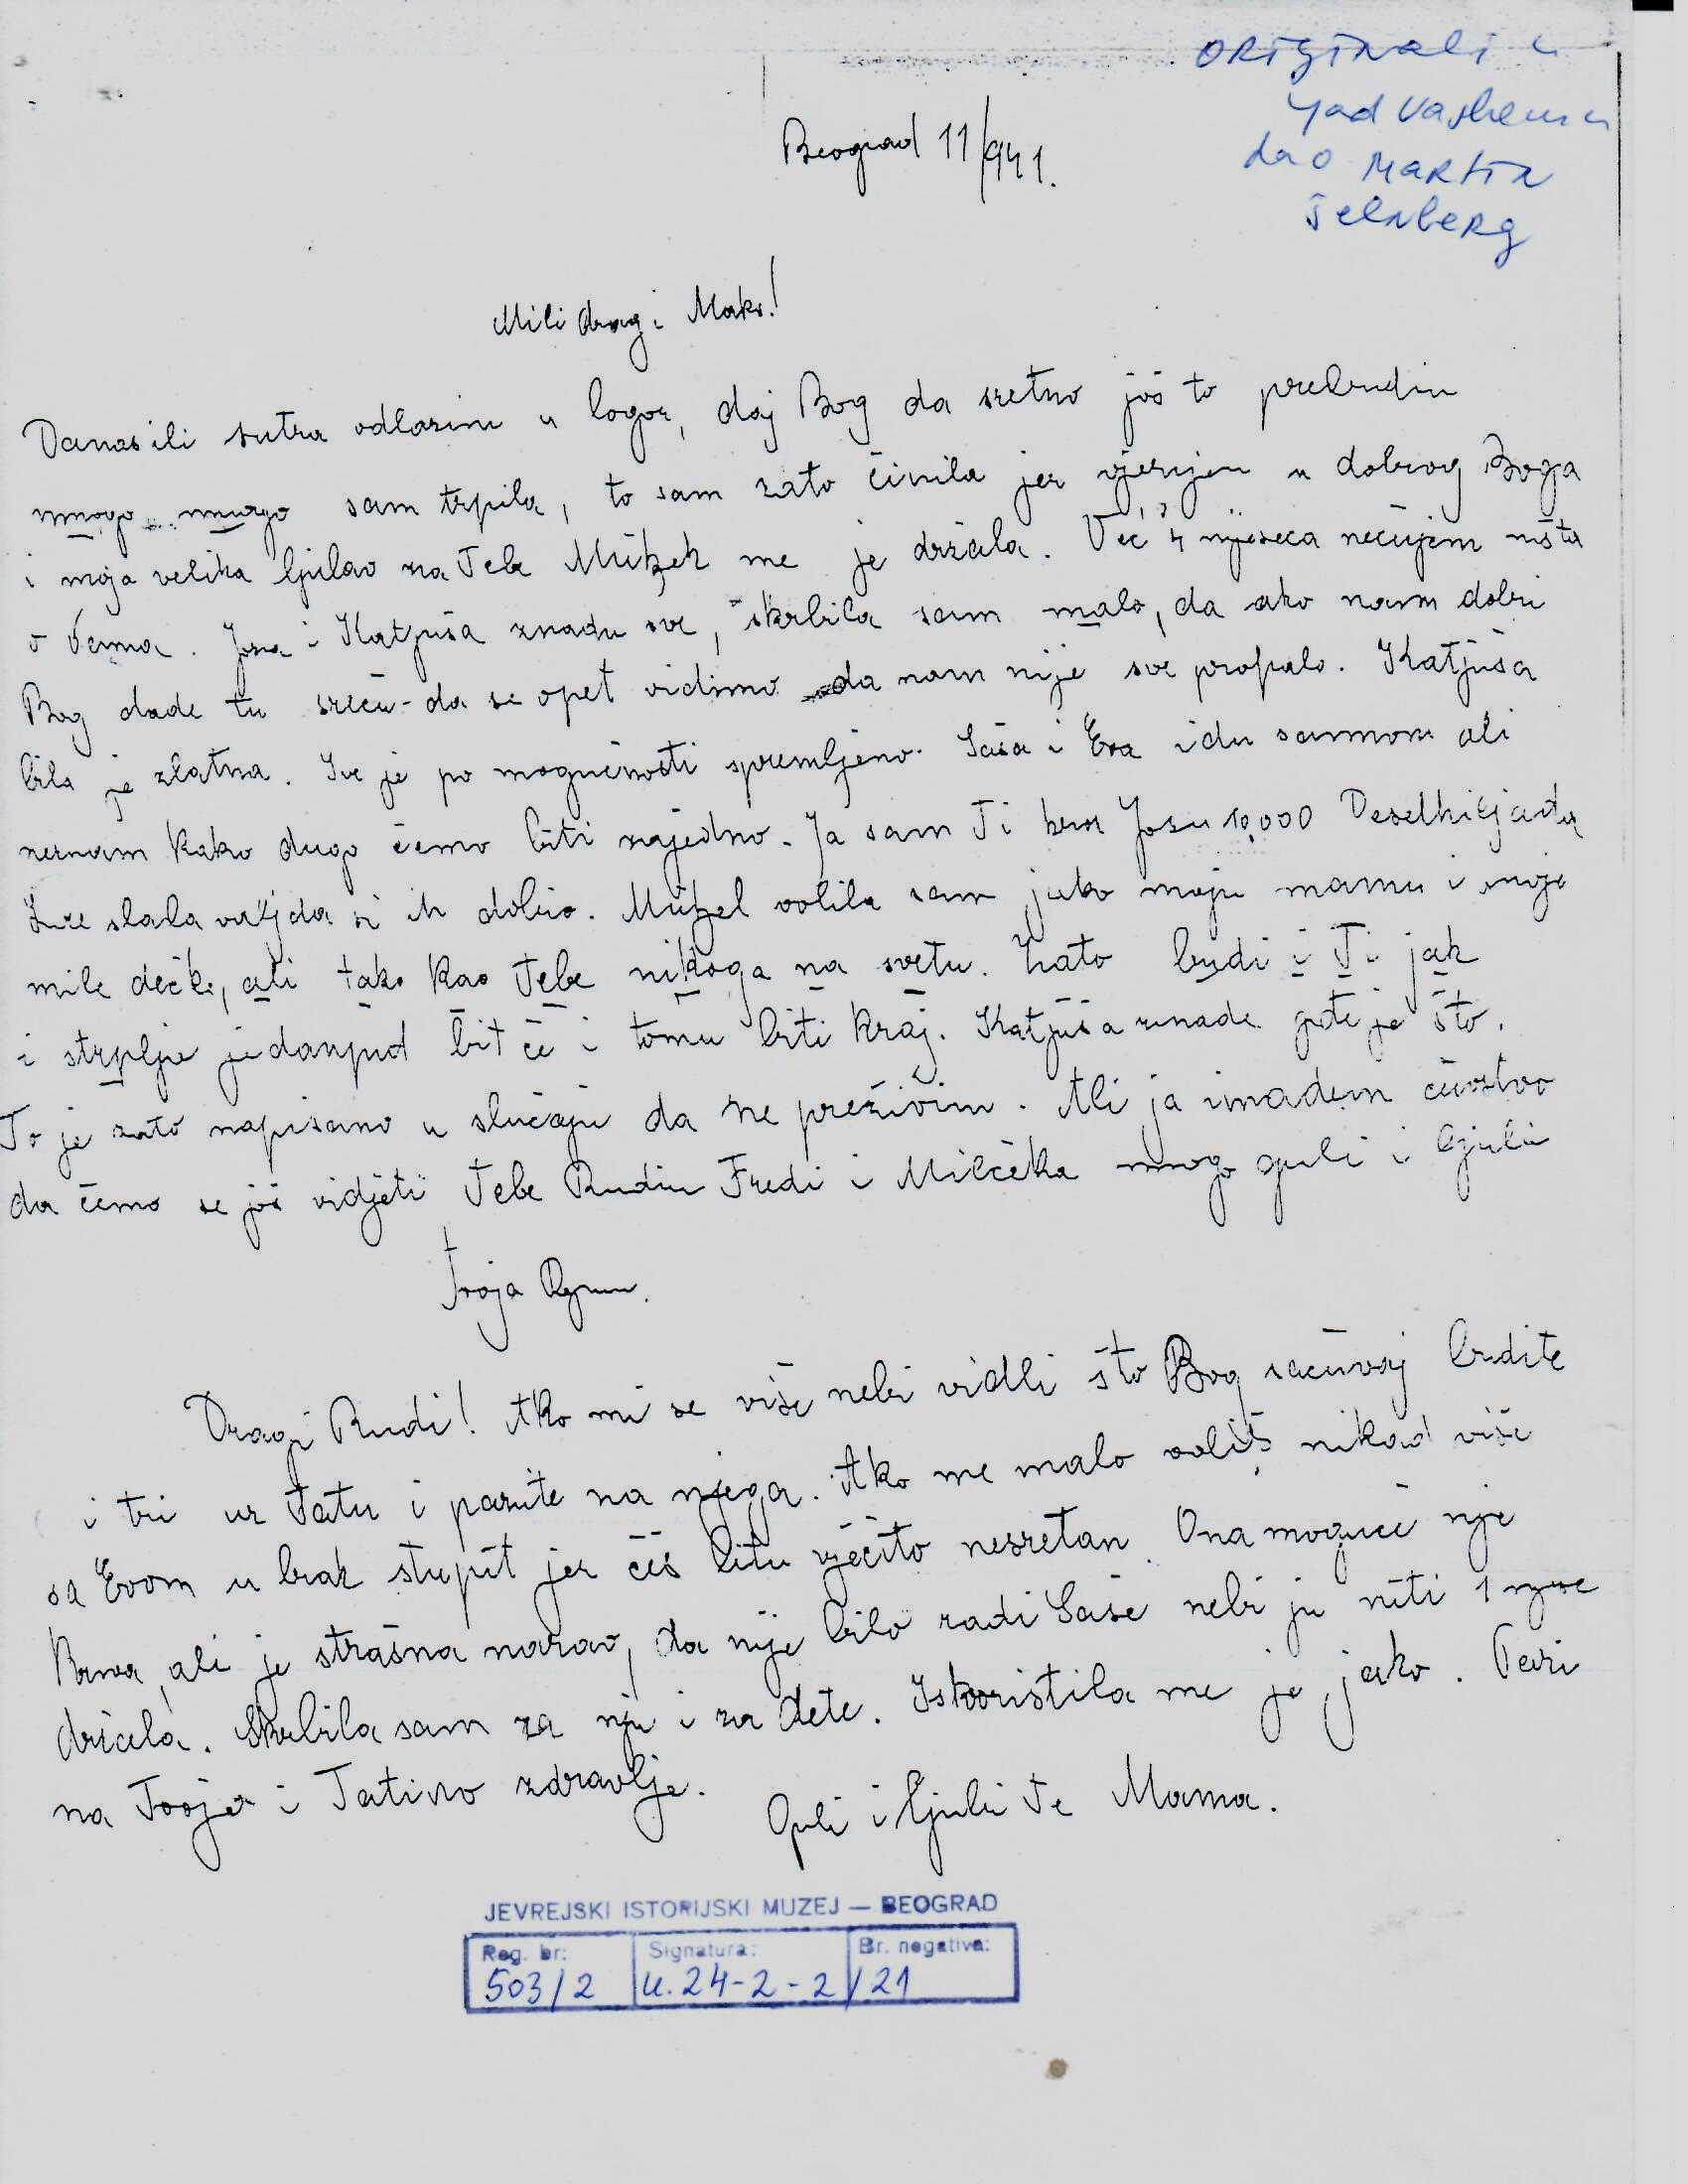 ORIGINALI u
Yad Vashemu
dao MARTIN
Šelnberg
Beograd 11/941.
Mili dragi Maks!
Danas ili sutra odlazim u logor, daj Bog da sretno još to prebudim
mnogo mnogo sam trpila, to sam zato činila jer vjerujem u dobrog Boga
i moja velika ljubav za Tebe me je držala. Već 4 mjeseca nečujem ništa
o Vama. Joza i Katjuša znadu sve, škrbila sam malo, da ako nam dobri
Bog dade tu sreću - da se opet vidimo da nam nije sve propalo. Katjuša
bila je zlatna. Sve je po mogućnosti spremljeno. Saša i Eva idu samnom ali
neznam kako dugo ćemo biti zajedno. Ja sam Ti kroz Jozu 10,000 Desethiljada
Kune slala valjda si ih dobio. volila sam jako moju mamu i moje
mile dečke, ali tako kao Tebe nikoga na svetu. Zato budi i Ti jak
i strpljiv jedanput bit će i tomu biti kraj. Katjuša znade gdje je što.
To je zato napisano u slučaju da ne preživim. Ali ja imadem čuvstvo
da ćemo se još vidjeti Tebe Rudiu Fredi i Milčeka mnogo grli i ljubi
Tvoja
Dragi Rudi! Ako mi se više nebi vidli što Bog sačuvaj budite
i tri uz Tatu i pazite na njega. Ako me malo voliš nikad više
sa Evom u brak stupit jer ćeš bitu vječito nesretan. Ona moguće nije
kriva, ali je strašna narav, da nije bilo radi Saše nebi ju niti 1
držala. Skrbila sam za nju i za dete. Iskoristila me je jako. Pazi
na Tvoje i Tatino zdravlje.
Grli i ljubi Te Mama.
JEVREJSKI ISTORIJSKI MUZEJ — BEOGRAD
Reg. br: Signatura: Br. negativa:
503/2 u. 24-2-2/21